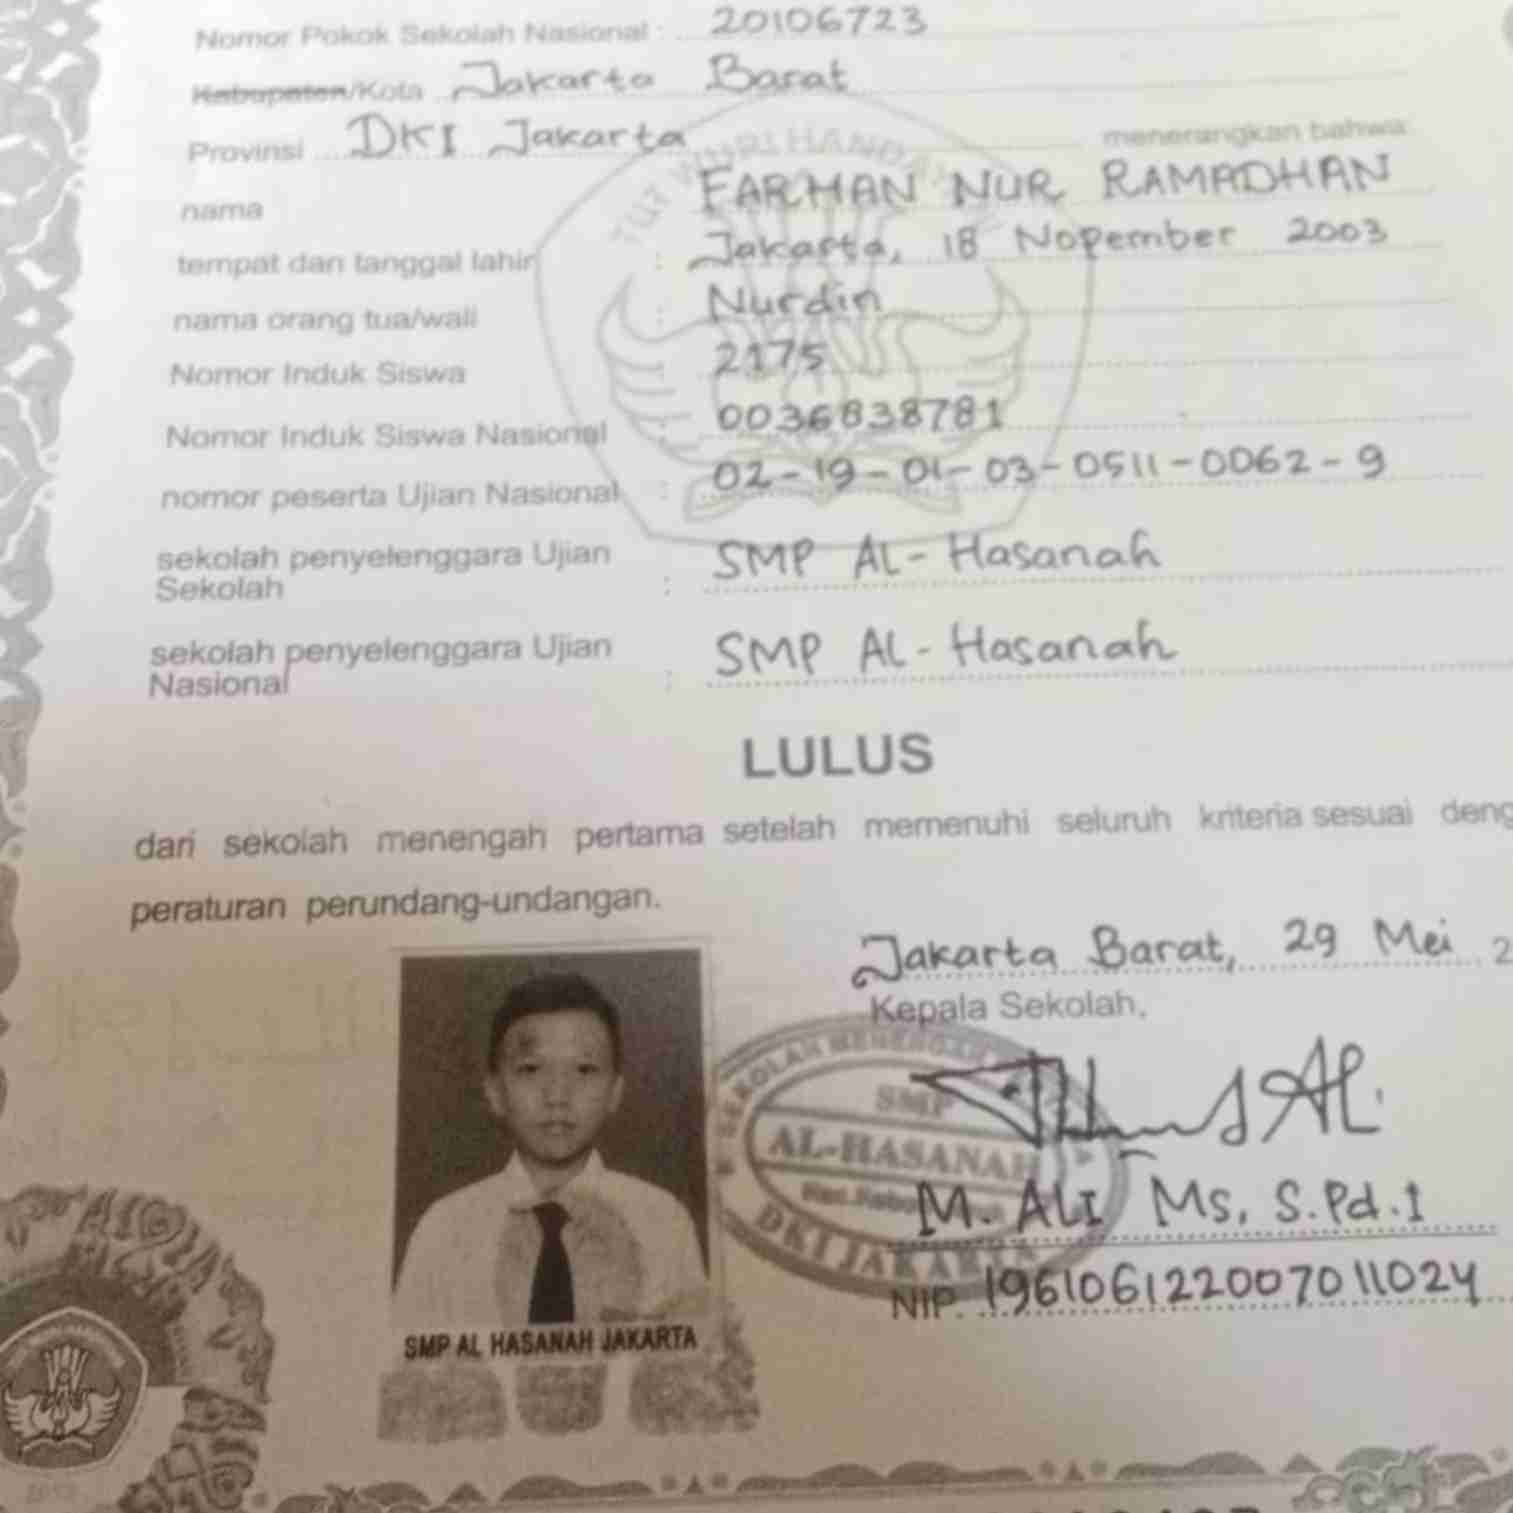 Nomor Pokok Sekolah Nasional : 20106723
Kabupaten/Kota Jakarta Barat
Provinsi DKI Jakarta menerangkan bahwa
nama FARHAN NUR RAMADHAN
tempat dan tanggal lahir : Jakarta, 18 Nopember 2003
nama orang tua/wali : Nurdin
Nomor Induk Siswa : 2175
Nomor Induk Siswa Nasional : 0036838781
nomor peserta Ujian Nasional : 02-19-01-03-0511-0062-9
sekolah penyelenggara Ujian
Sekolah : SMP AL-Hasanah
sekolah penyelenggara Ujian
Nasional : SMP AL-Hasanah
LULUS
dari sekolah menengah pertama setelah memenuhi seluruh kriteria sesuai deng
peraturan perundang-undangan.
Jakarta Barat, 29 Mei 2
Kepala Sekolah,
SEKOLAH MENENGAH
SMP
AL-HASANAH
DKI JAKARTA
M. ALI Ms, S.Pd.I
NIP. 196106122007011024
SMP AL HASANAH JAKARTA
TUT WURI HANDAY